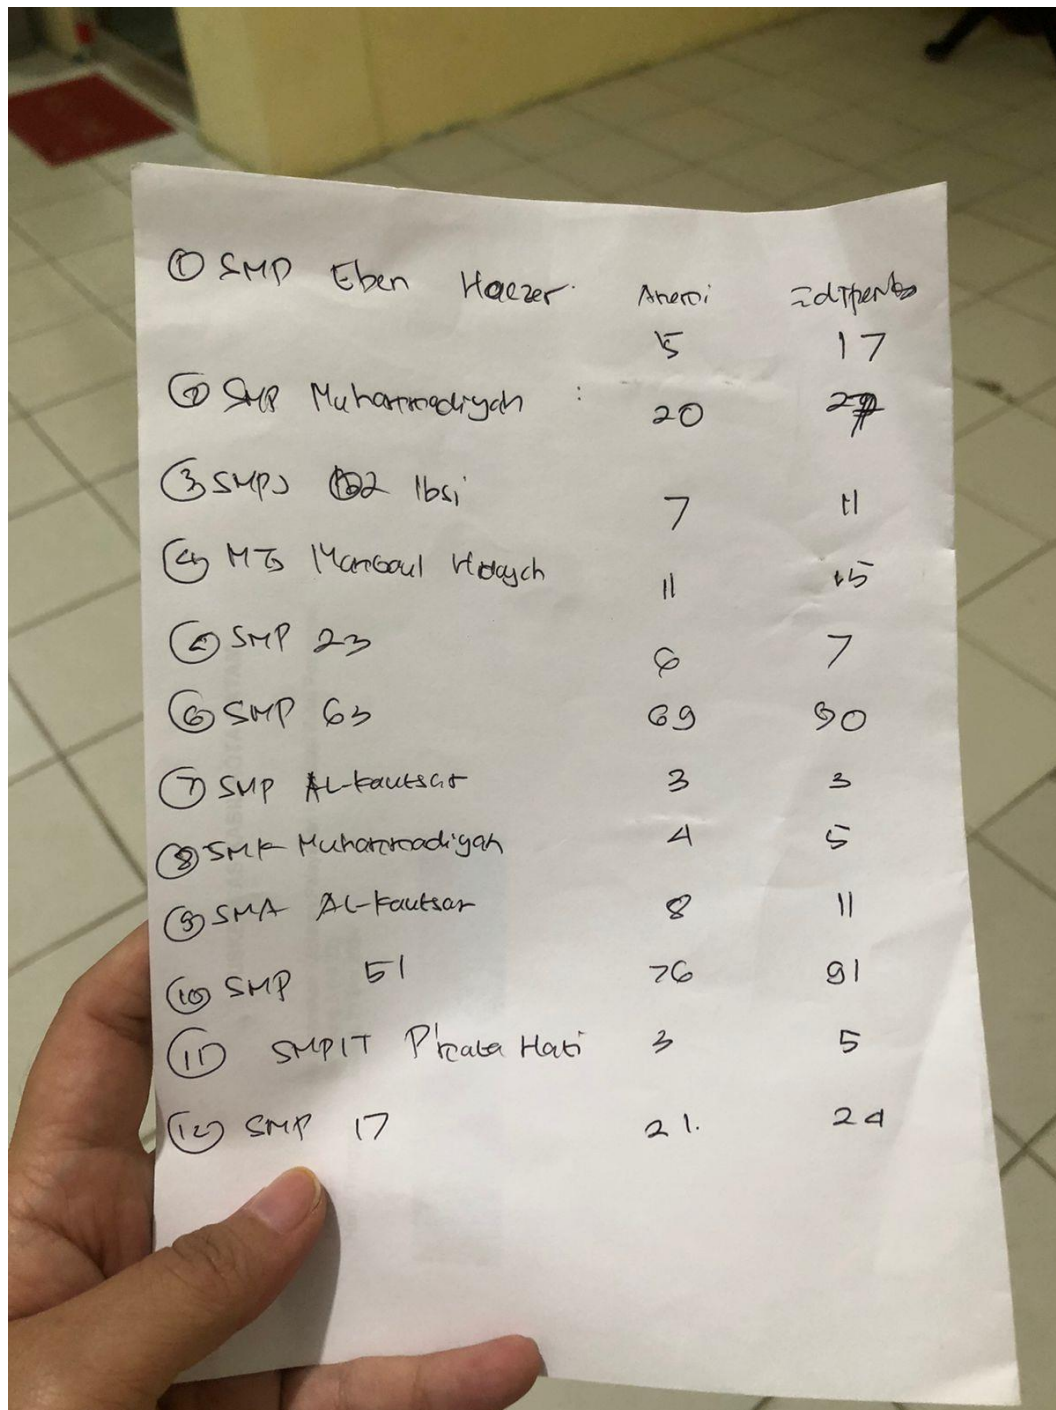 ① SMP Eben Haezer. Anemi
15 17
② SMP Muhammadiyah : 20
③ SMPS Ibsi 7 11
④ MTs Manbaul Hidayah 11 15
SMP 23 6 7
⑥ SMP 63 69 90
⑦ SMP AL-Kautsar 3 3
⑧ SMK Muhammadiyah 4 5
⑨ SMA AL-Kautsar 8 11
⑩ SMP 51 76 91
⑪ SMPIT Hati 3 5
⑫ SMP 17 21. 24